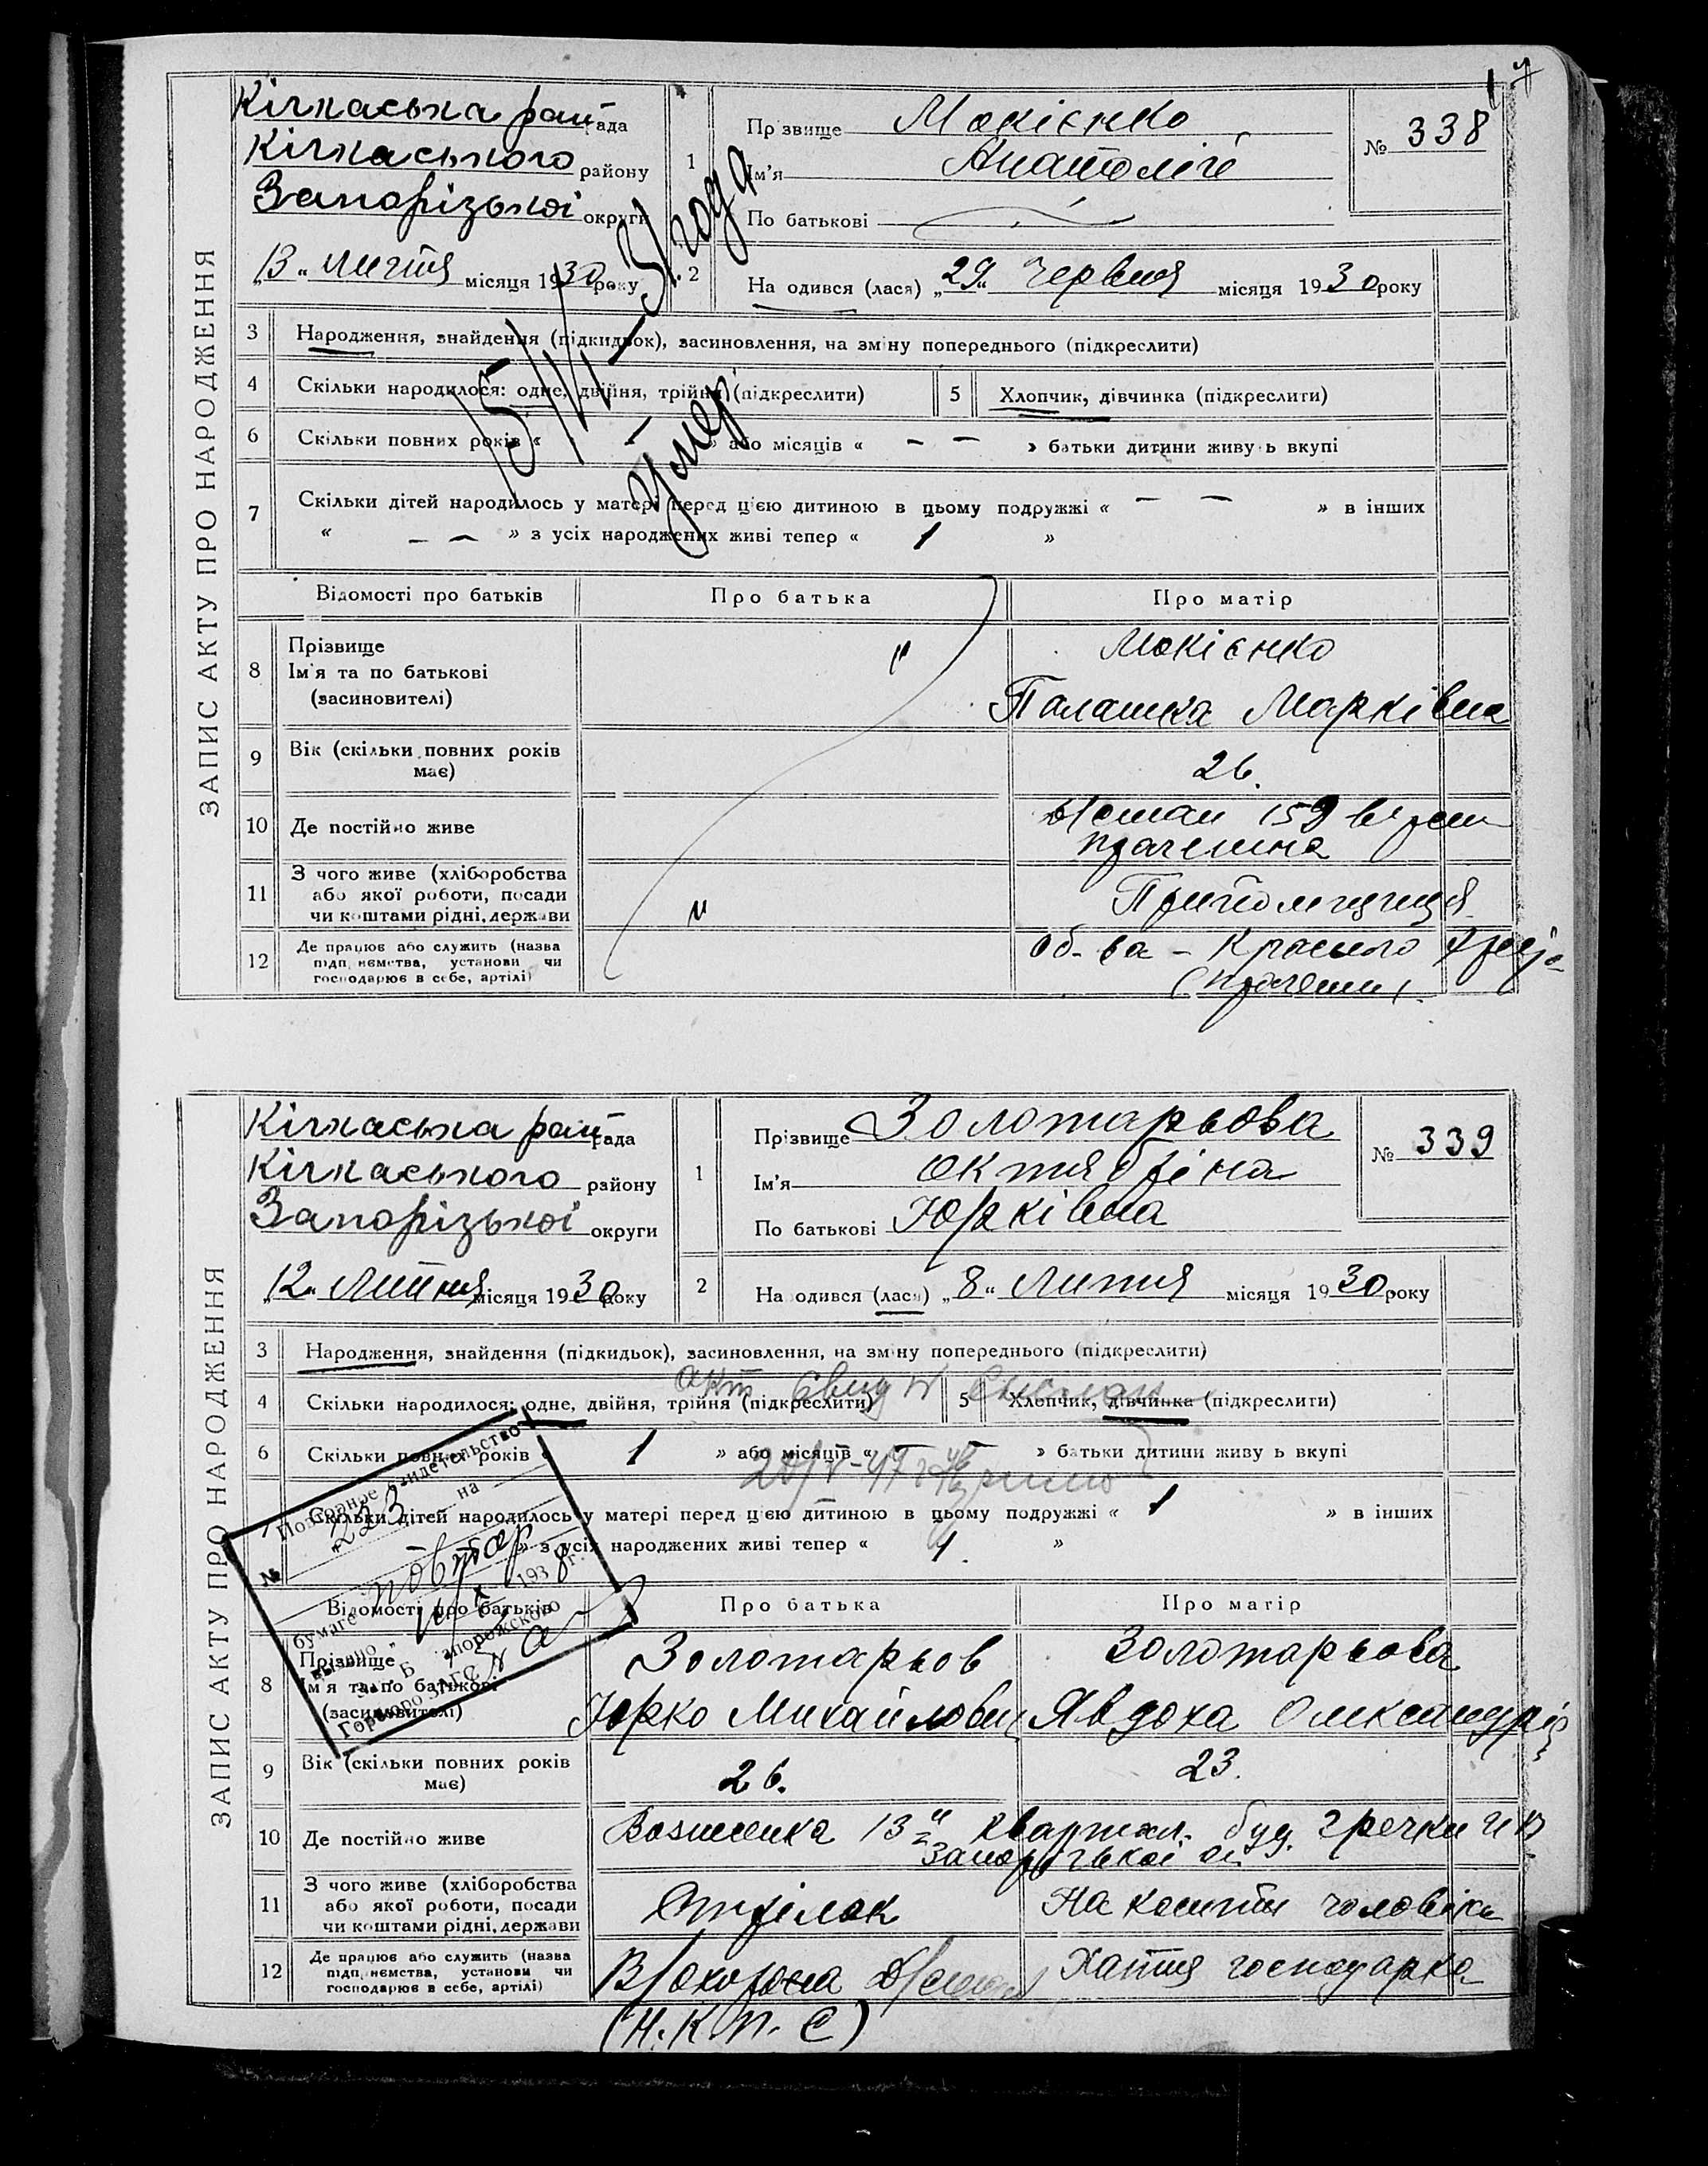 ЗАПИС АКТУ ПРО НАРОДЖЕННЯ
Кічкаська рай рада
Кічкаського району
Запорізької округи
„13“ Липня місяця 1930 року
1
Прізвище Мокієнко
Ім'я Анатолій
По батькові
№ 338
2
На одився (лася) „29“ Червня місяця 1930 року
15/III–31 года
Умер
3 Народження, знайдення (підкидьок), засиновлення, на зміну попереднього (підкреслити)
4 Скільки народилося: одне, двійня, трійня (підкреслити) 5 Хлопчик, дівчинка (підкреслити)
6 Скільки повних років « – » або місяців « – – » батьки дитини живу ь вкупі
7 Скільки дітей народилось у матері перед цією дитиною в цьому подружжі « – – » в інших
« – – » з усіх народжених живі тепер « 1 »
Відомості про батьків Про батька Про матір
8 Прізвище
Ім'я та по батькові
(засиновителі)
Мокієнко
Палашка Марківна
9 Вік (скільки повних років має)
26.
10 Де постійно живе
159
11 З чого живе (хліборобства
або якої роботи, посади
чи коштами рідні, держави
12 Де працює або служить (назва
підприємства, установи чи
господарює в себе, артілі)
об-ва – Красного
ЗАПИС АКТУ ПРО НАРОДЖЕННЯ
Кічкаська рай рада
Кічкаського району
Запорізької округи
„12“ Липня місяця 1930 року
1
Прізвище Золотарьова
Ім'я Октябріна
По батькові Юрківна
№ 339
2
На одився (лася) „8“ Липня місяця 1930 року
3 Народження, знайдення (підкидьок), засиновлення, на зміну попереднього (підкреслити)
4 Скільки народилося: одне, двійня, трійня (підкреслити) 5 Хлопчик, дівчинка (підкреслити)
6 Скільки повних років « 1 » або місяців « – – » батьки дитини живу ь вкупі
7 Скільки дітей народилось у матері перед цією дитиною в цьому подружжі « 1 » в інших
« – » з усіх народжених живі тепер « 1. »
Повторное свидетельство
№ 223 на
бумаге повтор
выдано 1938 г.
З. Б. Запорожского
Горбюро ЗАГС
Відомості про батьків Про батька Про матір
8 Прізвище
Ім'я та по батькові
(засиновителі)
Золотарьов
Юрко Михайлович
Золотарьова
Явдоха Олександрів
9 Вік (скільки повних років має)
26.
23.
10 Де постійно живе
Вознесенка 13й квартал. буд. Гречки
Запорізької ок
11 З чого живе (хліборобства
або якої роботи, посади
чи коштами рідні, держави
Стрілок
На кошти чоловіка
12 Де працює або служить (назва
підприємства, установи чи
господарює в себе, артілі)
В/охорона
Хатня господарка
(Н.К.П.С)